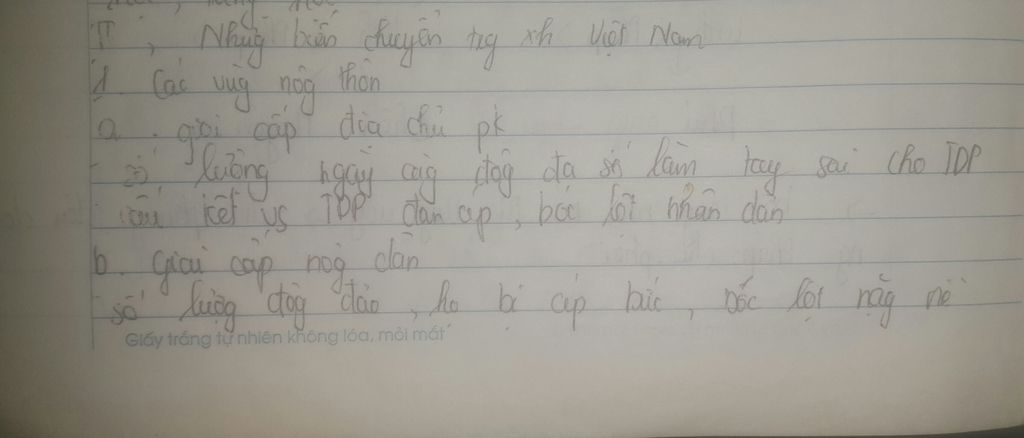 II, Nhữg biến chuyển trg xh Việt Nam
1. Các vùg nôg thôn
a. giai cấp địa chủ pk
- số lượng ngày càg đôg đa số làm tay sai cho TDP
câu kết vs TDP đàn áp, bóc lột nhân dân
b. Giai cấp nôg dân
- số lượg đôg đảo, họ bị áp bức, bóc lột nặg nề
Giấy trắng tự nhiên không lóa, mỏi mắt